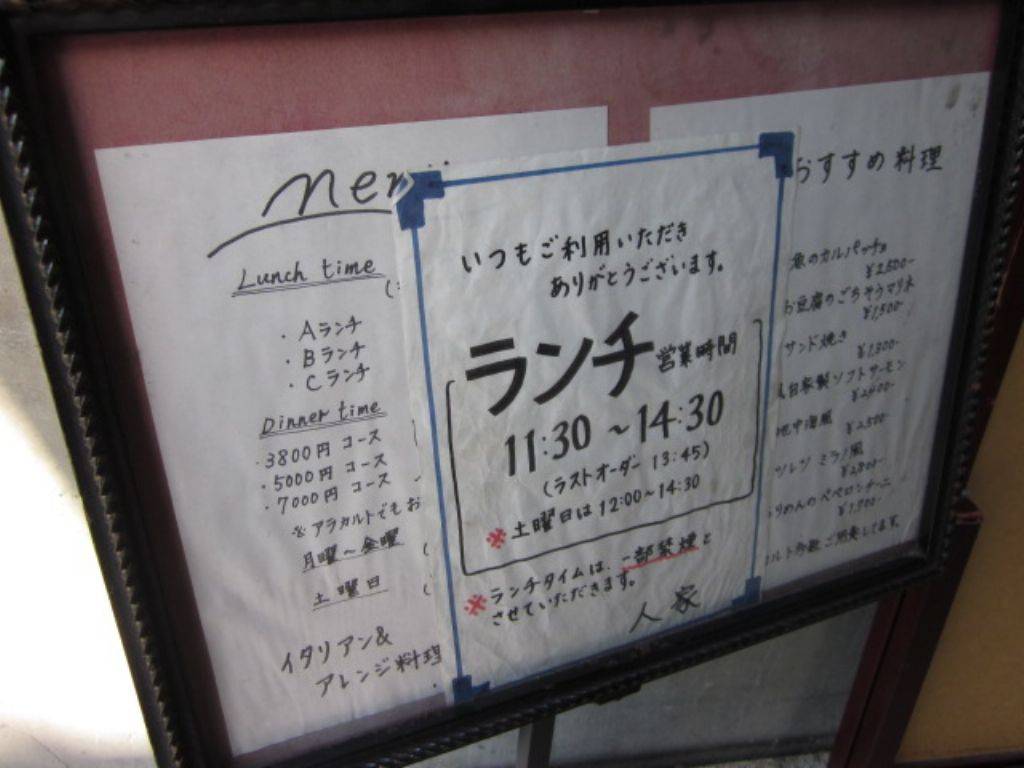 Lunch time
・Aランチ
・Bランチ
・Cランチ
Dinner time
・3800円 コース
・5000円 コース
・7000円 コース
※アラカルトでもお
月曜～金曜
土曜日
イタリアン&
アレンジ料理
いつもご利用いただき
ありがとうございます。
ランチ営業時間
11:30～14:30
(ラストオーダー 13:45)
※土曜日は12:00～14:30
※ランチタイムは、一部禁煙と
させていただきます。
人家
おすすめ料理
魚のカルパッチョ
¥2,500-
お豆腐のごちそうマリネ
¥1,500-
サンド焼き
¥1,800-
自家製ソフトサーモン
¥2,400-
地中海風
¥2,500-
ミラノ風
¥2,800-
りめんのペペロンチーニ
¥1,900-